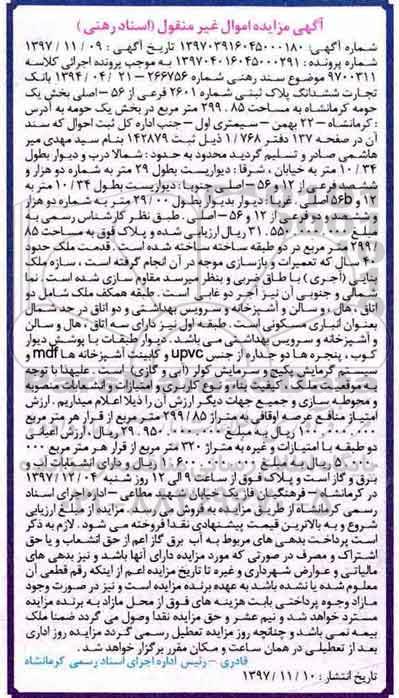 آگهی مزایده اموال غیر منقول (اسناد رهنی)
شماره آگهی: ۱۳۹۷۰۳۹۱۶۰۴۵۰۰۰۱۸۰ تاریخ آگهی: ۰۹ / ۱۱ / ۱۳۹۷
شماره پرونده: ۱۳۹۷۰۴۰۱۶۰۴۵۰۰۰۲۹۱ به موجب پرونده اجرائی کلاسه
۹۷۰۰۳۱۱ موضوع سند رهنی شماره ۲۶۶۷۵۶ – ۲۱ / ۰۴ / ۱۳۹۴ بانک
تجارت ششدانگ پلاک ثبتی شماره ۲۶۰۱ فرعی از ۵۶ – اصلی بخش یک
حومه کرمانشاه به مساحت ۸۵ . ۲۹۹ متر مربع در بخش یک حومه به آدرس
: کرمانشاه – ۲۲ بهمن – سیمتری اول – جنب اداره کل ثبت احوال که سند
آن در صفحه ۱۳۷ دفتر ۱/۷۶۸ ذیل ثبت ۱۴۲۸۷۹ بنام سید مهدی میر
هاشمی صادر و تسلیم گردید محدود به حدود: شمالا درب و دیوار بطول
۳۴ / ۱۰ متر به خیابان ، شرقا: دیواریست بطول ۲۹ متر به شماره دو هزار و
ششصد فرعی از ۱۲ و ۵۶ – اصلی جنوبا: دیواریست بطول ۳۴ / ۱۰ متر به
۱۲ و ۵۶b اصلی . غربا: دیوار بدیوار بطول ۰۰ / ۲۹ متر به شماره دو هزار
و ششصد و دو فرعی از ۱۲ و ۵۶ – اصلی . طبق نظر کارشناس رسمی به
مبلغ ۵۵۰ . ۳۱ ریال ارزیابی شده و پلاک فوق به مساحت ۸۵
/ ۲۹۹ متر مربع در دو طبقه ساخته ساخته شده است . قدمت ملک حدود
۴۰ سال که تعمیرات و بازسازی موجه در آن انجام گرفته است ، سازه ملک
بنایی (آجری) با طاق ضربی و بنظر میرسد مقاوم سازی شده است . نما
شمالی و جنوبی آن نیز آجر دو غابی است . طبقه همکف ملک شامل دو
اتاق ، هال ، و سالن و آشپزخانه و سرویس بهداشتی و دو اتاق در حد شمال
بعنوان انباری مسکونی است . طبقه اول نیز دارای سه اتاق ، هال و سالن
و آشپزخانه و سرویس بهداشتی می باشد . دیوار طبقات با پوشش دیوار
کوب ، پنجره ها دو جداره از جنس upvc و کابینت آشپزخانه ها mdf و
سیستم گرمایش پکیج و سرمایش کولر (آبی و گازی) است . علیهذا با توجه
به موقعیت ملک ، کیفیت بنا و نوع کاربری و امتیازات و انشعابات منصوبه
و محوطه سازی و جمیع جهات دیگر ارزش آن را ذیلا اعلام میداریم . ارزش
امتیاز منافع عرصه اوقافی به متراژ ۸۵ / ۲۹۹ متر مربع از قرار هر متر مربع
۱۰۰.۰۰۰.۰۰۰ ریال به مبلغ ۹۵۰ . ۲۹ ریال . ارزش اعیانی
دو طبقه با امتیازات و غیره به متراژ ۳۲۰ متر مربع از قرار هر متر مربع
ریال به مبلغ ۱.۶۰۰ ریال و دارای انشعابات آب و
برق و گاز است و پلاک فوق از ساعت ۹ الی ۱۲ روز شنبه ۰۴ / ۱۲ / ۱۳۹۷
در کرمانشاه – فرهنگیان فاز یک خیابان شهید مطاعی – اداره اجرای اسناد
رسمی کرمانشاه از طریق مزایده به فروش می رسد . مزایده از مبلغ ارزیابی
شروع و به بالاترین قیمت پیشنهادی نقدا فروخته می شود . لازم به ذکر
است پرداخت بدهی های مربوط به آب برق گاز اعم از حق انشعاب و یا حق
اشتراک و مصرف در صورتی که مورد مزایده دارای آنها باشد و نیز بدهی های
مالیاتی و عوارض شهرداری و غیره تا تاریخ مزایده اعم از اینکه رقم قطعی آن
معلوم شده یا نشده باشد به عهده برنده مزایده است و نیز در صورت وجود
مازاد وجوه پرداختی بابت هزینه های فوق از محل مازاد به برنده مزایده
مسترد خواهد شد و نیم عشر و حق مزایده نقدا وصول می گردد ضمنا ملک
بیمه نمی باشد و چنانچه روز مزایده تعطیل رسمی گردد مزایده روز اداری
بعد از تعطیلی در همان ساعت و مکان مقرر برگزار خواهد شد.
قادری – رئیس اداره اجرای اسناد رسمی کرمانشاه
تاریخ انتشار: ۱۰ / ۱۱ / ۱۳۹۷